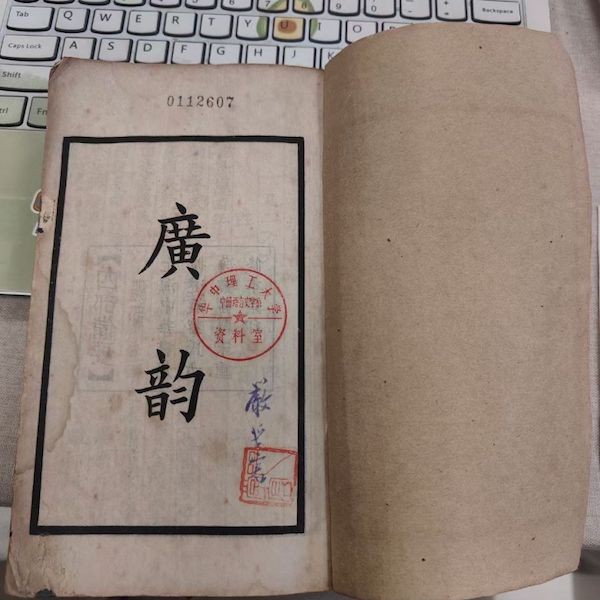 Backspace
Tab
Q W E R T Y U I O
Caps Lock
Shift
Fn
0112607
廣韵
华中理工大学
资料室
嚴